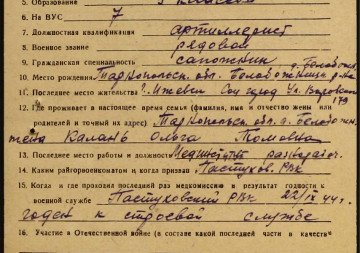 5. Образования
6. На ВУС 7
7. Должностная квалификация артиллерист
8. Военное звание рядовой
9. Гражданская специальность сапожник
10. Место рождения Тарнопольск. обл.
11. Последнее место жительства г. Ижевск Соц город ул.
179
12. Где проживает в настоящее время семья (фамилия, имя и отчество жены или
родителей и точный их адрес) Тарнопольск. обл.
жена Калань Ольга Томовна
13. Последнее место работы и должность
14. Каким райгорвоенкоматом и когда призван Пастухов. РВК
15. Когда и где проходил последний раз медкомиссию и результат годности к
военной службе Пастуховский РВК 22/IX 44 г.
годен к строевой службе
16. Участие в Отечественной войне (в составе какой последней части в качестве